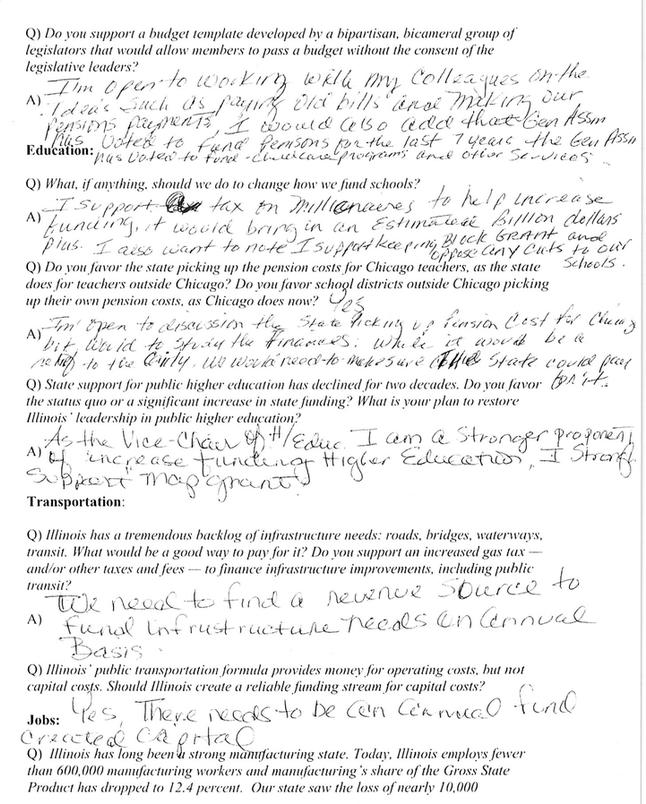 Q) Do you support a budget template developed by a bipartisan, bicameral group of
legislators that would allow members to pass a budget without the consent of the
legislative leaders?
I'm open to working with my Colleagues on the
A) Idea's Such as paying old bills and Making our
pensions payments, I would also add that Gen Assm
has Voted to fund Pensions for the last 7 years. the Gen Assm
Education: has Voted to fund childcare programs and other Services.
Q) What, if anything, should we do to change how we fund schools?
I support tax on Millionaires to help increase
A) funding, it would bring in an Estimated Billion dollars
plus. I also want to note I support keeping Block GRANT and
oppose any cuts to our
Schools.
Q) Do you favor the state picking up the pension costs for Chicago teachers, as the state
does for teachers outside Chicago? Do you favor school districts outside Chicago picking
up their own pension costs, as Chicago does now? Yes
A) I'm open to discussion the State Picking up Pension Cost for
but would to Study the Finances. While it would be a
relief to the City. We would need to make sure the State could pay
for it.
Q) State support for public higher education has declined for two decades. Do you favor
the status quo or a significant increase in state funding? What is your plan to restore
Illinois' leadership in public higher education?
A) As the Vice-Chair of H/Educ. I am a Stronger proponent
of increase funding Higher Education, I Strong
Support Map grant!
Transportation:
Q) Illinois has a tremendous backlog of infrastructure needs: roads, bridges, waterways,
transit. What would be a good way to pay for it? Do you support an increased gas tax —
and/or other taxes and fees — to finance infrastructure improvements, including public
transit?
We need to find a revenue Source to
A) fund infrustructure needs on Annual
Basis.
Q) Illinois' public transportation formula provides money for operating costs, but not
capital costs. Should Illinois create a reliable funding stream for capital costs?
Jobs: Yes, There needs to be an Annual fund
created Capital
Q) Illinois has long been a strong manufacturing state. Today, Illinois employs fewer
than 600,000 manufacturing workers and manufacturing's share of the Gross State
Product has dropped to 12.4 percent. Our state saw the loss of nearly 10,000